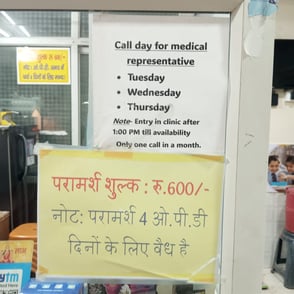 Call day for medical
representative
• Tuesday
• Wednesday
• Thursday
Note- Entry in clinic after
1:00 PM till availability
Only one call in a month.
परामर्श शुल्क : रु.600/-
नोट: परामर्श 4 ओ.पी.डी
दिनों के लिए वैध है